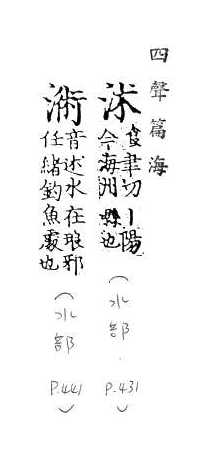 四聲篇海
沭 食聿切丨陽今海州縣也(水部.P.431)
𣻚 音述水在琅邪任緒釣魚處也(水部P.441)